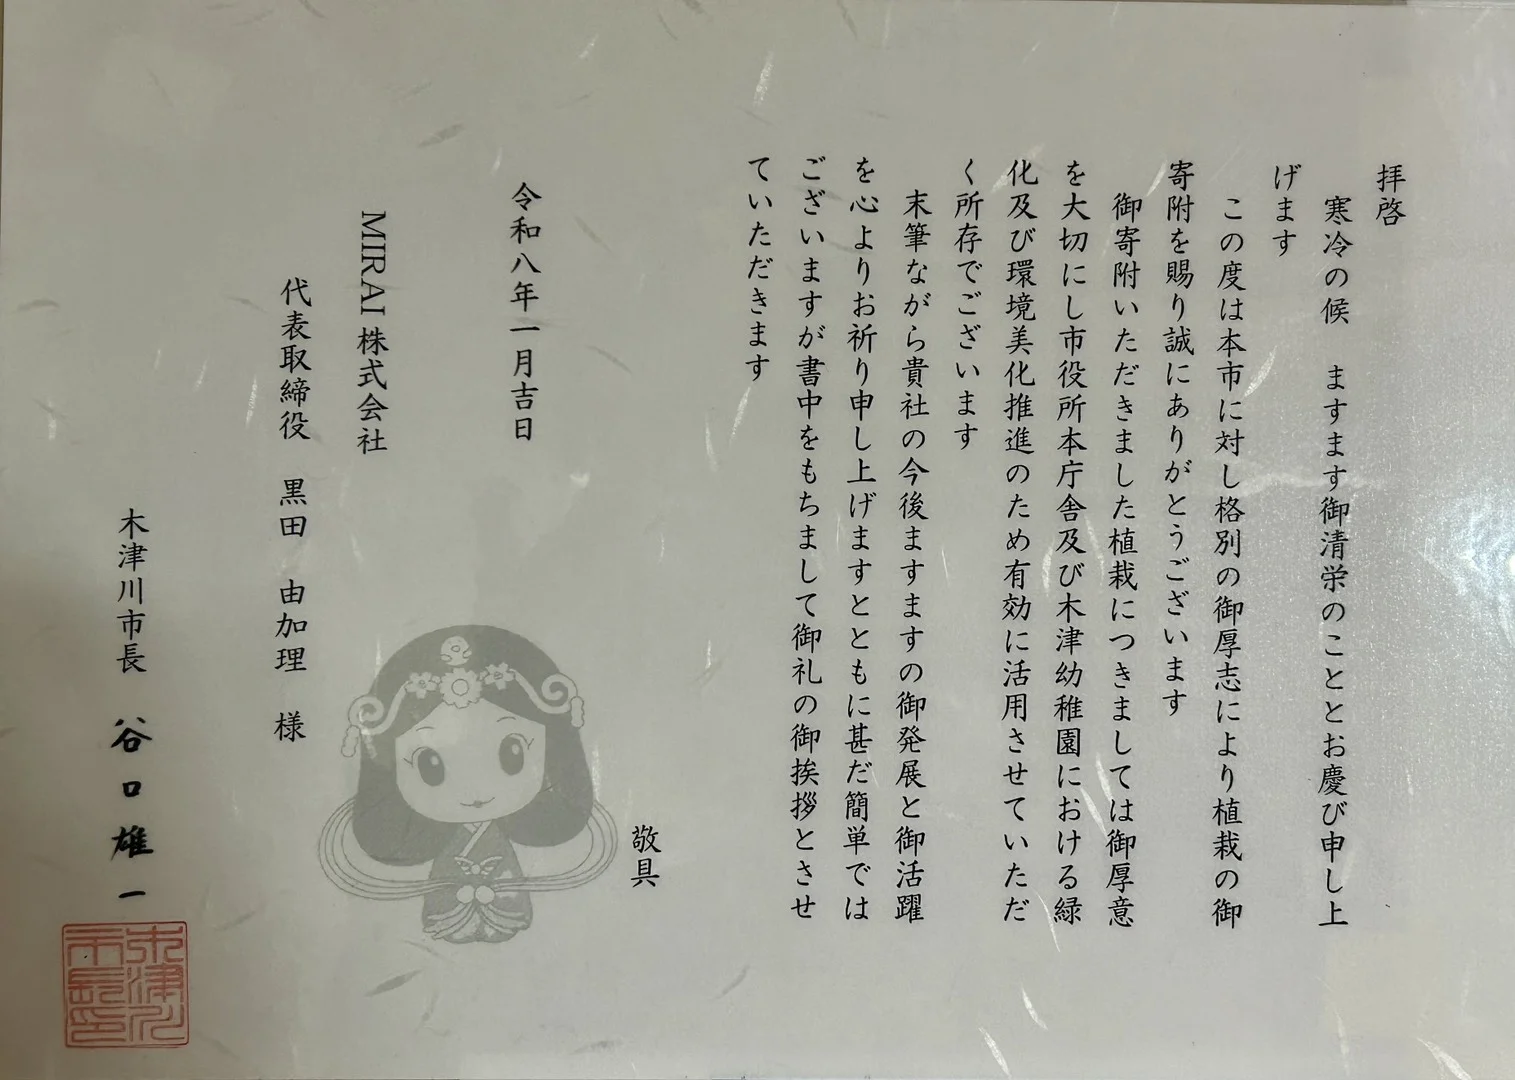 拝啓
寒冷の候　ますます御清栄のこととお慶び申し上
げます
この度は本市に対し格別の御厚志により植栽の御
寄附を賜り誠にありがとうございます
御寄附いただきました植栽につきましては御厚意
を大切にし市役所本庁舎及び木津幼稚園における緑
化及び環境美化推進のため有効に活用させていただ
く所存でございます
末筆ながら貴社の今後ますますの御発展と御活躍
を心よりお祈り申し上げますとともに甚だ簡単では
ございますが書中をもちまして御礼の御挨拶とさせ
ていただきます
敬具
令和八年一月吉日
MIRAI 株式会社
代表取締役　黒田　由加理　様
木津川市長　谷口雄一
木津川
市長印